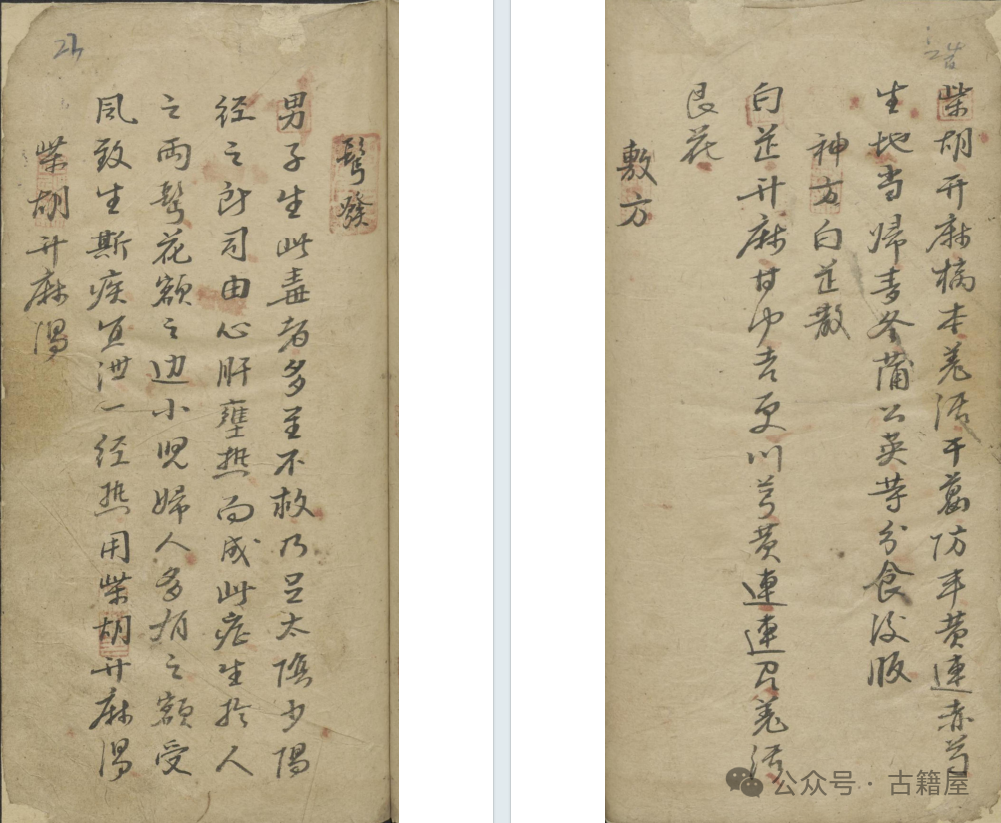 鬢發
男子生此毒者多至不救乃足太陰少陽
経之部司由心肝壅热而成此症生於人
之両鬢花額之边小児婦人多有之額受
風致生斯疾宜泄一经热用柴胡升麻湯
柴胡升麻湯
柴胡升麻槁本羌活干葛防丰黄連赤芍
生地当歸麦冬蒲公英等分食後服
神方白芷散
白芷升麻甘屮吉更川芎黄連連召羌活
艮花
敷方
公众号 · 古籍屋